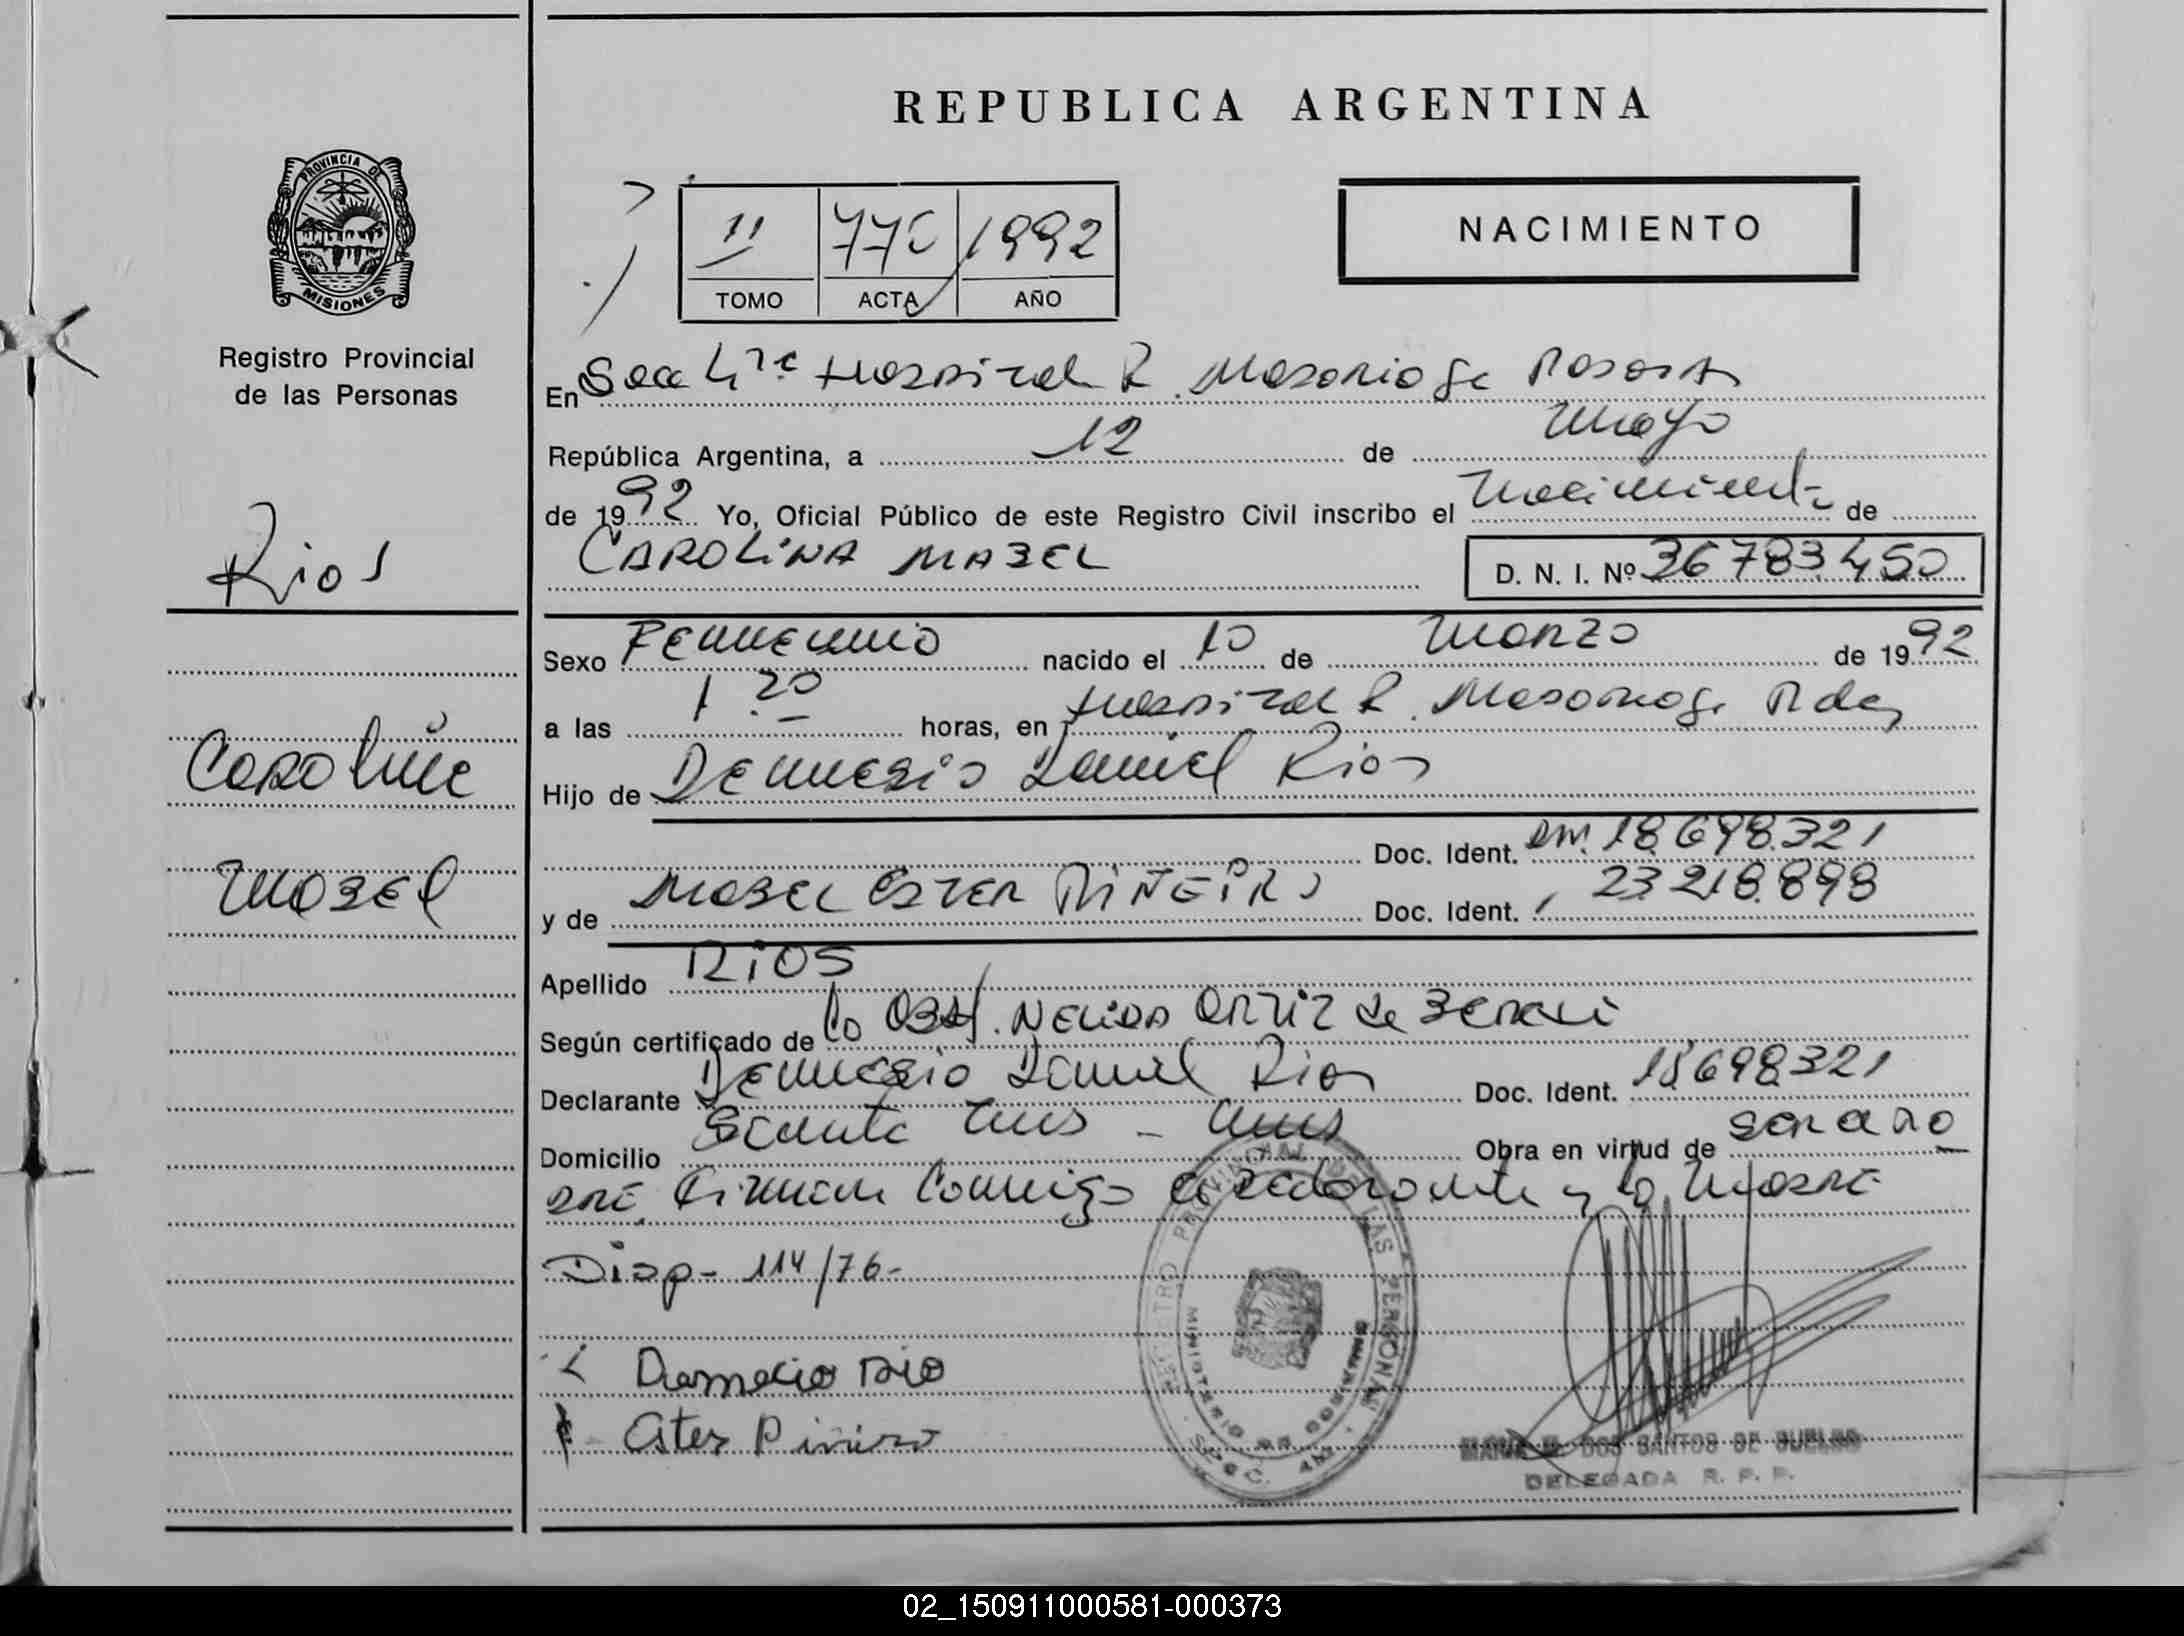 REPUBLICA ARGENTINA
PROVINCIA DE
MISIONES
Registro Provincial
de las Personas
II 770 1992
TOMO ACTA AÑO
NACIMIENTO
En Secc 1ra Hospital R. Madariaga Posadas
República Argentina, a 12 de Mayo
de 1992 Yo, Oficial Público de este Registro Civil inscribo el Nacimiento de
CAROLINA MABEL D. N. I. Nº 36783450
Rios
Sexo Femenino nacido el 10 de Marzo de 1992
a las 1.20 horas, en Hospital R. Madariaga Pdas
Carolina
Hijo de Demnesio Daniel Rios
Doc. Ident. DNI. 18.698.321
Mabel
y de MABEL ESTER PIÑEIRO Doc. Ident. 23.218.898
Apellido RIOS
Según certificado de la Obst. NELIDA ORTIZ de
Declarante Demnesio Daniel Rios Doc. Ident. 18698321
Domicilio Obra en virtud de ser a no
Firman Conmigo el declarante y la Madre
Disp- 114/76-
Rio
Ester Piñiro
REGISTRO PROVINCIAL DE LAS PERSONAS
MINISTERIO DE GOBIERNO
DOS SANTOS DE
DELEGADA R. P. P.
02_150911000581-000373